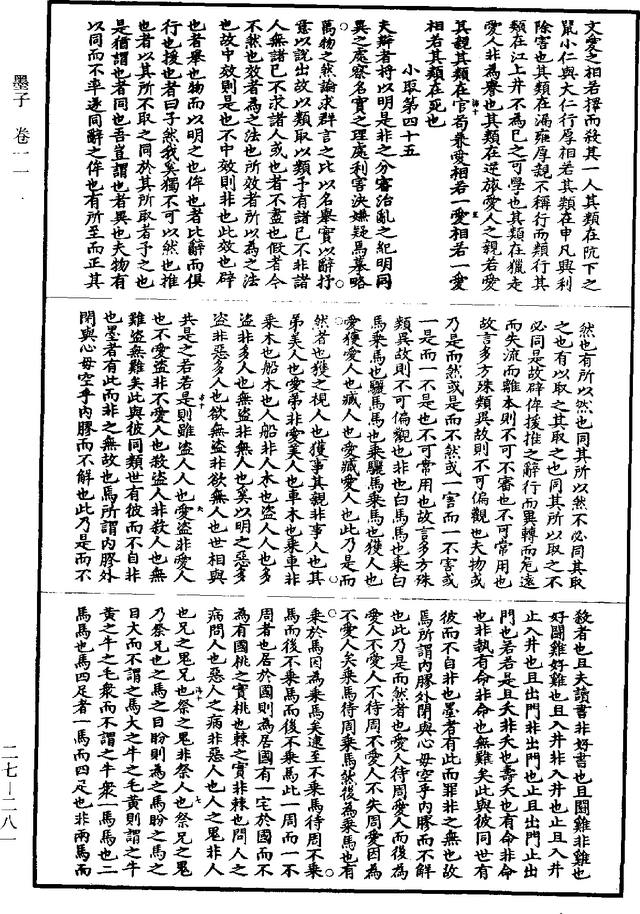 文愛之相若擇而殺其一人其類在阬下之
鼠小仁與大仁行厚相若其類在申凡興利
除害也其類在漏雍厚親不稱行而類行其
類在江上井不為己之可學也其類在獵走
愛人非為譽也其類在逆旅愛人之親若愛
其親其類在官苟兼愛相若一愛相若一愛
相若其類在死也
小取第四十五
夫辯者將以明是非之分審治亂之紀明同
異之處察名實之理處利害決嫌疑焉摹略
萬物之然論求群言之比以名舉實以辭抒
意以說出故以類取以類予有諸己不非諸
人無諸己不求諸人或也者不盡也假者今
不然也效者為之法也所效者所以為之法
也故中效則是也不中效則非也此效也辟
也者舉也物而以明之也侔也者比辭而俱
行也援也者曰子然我奚獨不可以然也推
也者以其所不取之同於其所取者予之也
是猶謂也者同也吾豈謂也者異也夫物有
以同而不率遂同辭之侔也有所至而正其
然也有所以然也同其所以然不必同其取
之也有以取之其取之也同其所以取之不
必同是故辟侔援推之辭行而異轉而危遠
而失流而離本則不可不審也不可常用也
故言多方殊類異故則不可偏觀也夫物或
乃是而然或是而不然或一害而一不害或
一是而一不是也不可常用也故言多方殊
類異故則不可偏觀也非也白馬馬也乘白
馬乘馬也驪馬馬也乘驪馬乘馬也獲人也
愛獲愛人也臧人也愛臧愛人也此乃是而
然者也獲之視人也獲事其親非事人也其
弟美人也愛弟非愛美人也車木也乘車非
乘木也船木也人船非人木也盜人人也多
盜非多人也無盜非無人也奚以明之惡多
盜非惡多人也欲無盜非欲無人也世相與
共是之若若是則雖盜人人也愛盜非愛人
也不愛盜非不愛人也殺盜人非殺人也無
難盜無難矣此與彼同類世有彼而不自非
也墨者有此而非之無故也焉所謂內膠外
閉與心毋空乎內膠而不解也此乃是而不
殺者也且夫讀書非好書也且鬬雞非雞也
好鬬雞好雞也且入井非入井也止且入井
止入井也且出門非出門也止且出門止出
門也若若是且夭非夭也壽夭也有命非命
也非執有命非命也無難矣此與彼同世有
彼而不自非也墨者有此而罪非之無也故
焉所謂內膠外閉與心毋空乎內膠而不解
也此乃是而然者也愛人待周愛人而後為
愛人不愛人不待周不愛人不失周愛因為
不愛人矣乘馬待周乘馬然後為乘馬也有
乘於馬因為乘馬矣逮至不乘馬待周不乘
馬而後不乘馬而後不乘馬此一周而一不
周者也居於國則為居國有一宅於國而不
為有國桃之實桃也棘之實非棘也問人之
病問人也惡人之病非惡人也人之鬼非人
也兄之鬼兄也祭之鬼非祭人也祭兄之鬼
乃祭兄也之馬之目盼則為之馬盼之馬之
目大而不謂之馬大之牛之毛黃則謂之牛
黃之牛之毛眾而不謂之牛眾一馬馬也二
馬馬也馬四足者一馬而四足也非兩馬而
墨子 卷一一
二七—二八